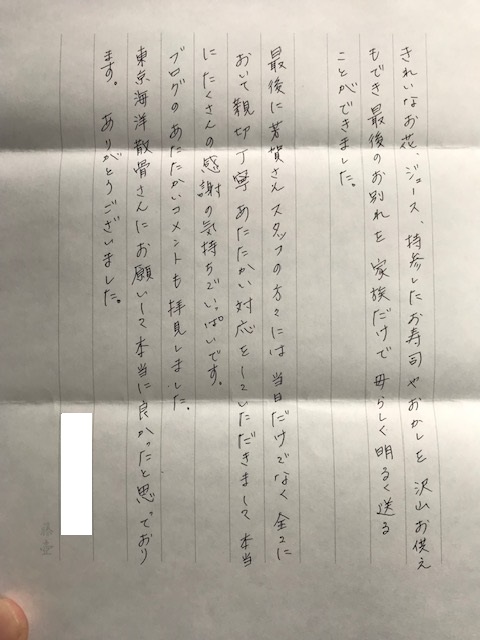 きれいなお花、ジュース、持参したお寿司やおかしを 沢山お供え
もでき最後のお別れを 家族だけで 母らしく明るく送る
ことができました。
最後に若賀さん スタッフの方々には 当日だけでなく 全てに
おいて親切丁寧 あたたかい対応をしていただきまして 本当
にたくさんの感謝の気持ちでいっぱいです。
ブログの あたたかいコメントも 拝見しました。
東京海洋散骨さんにお願いして本当に良かったと思っており
ます。 ありがとうございました。
藤壺